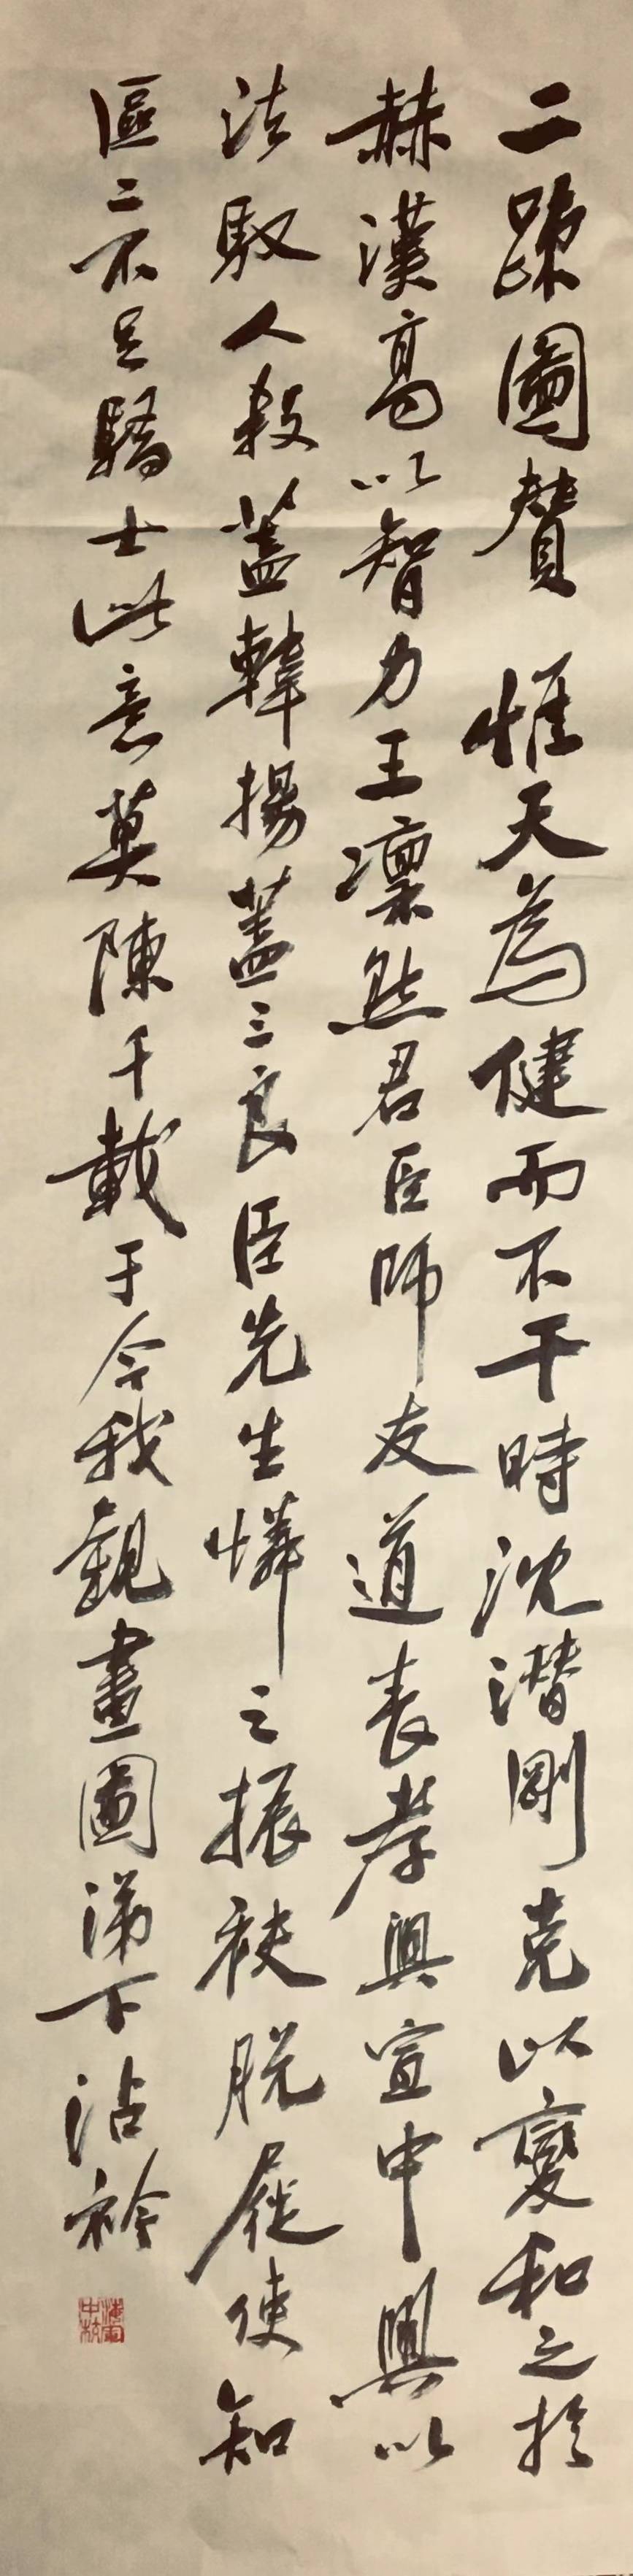 二踈圖贊 惟天為健而不干時沈潜剛克以燮和之於
赫漢高以智力王凛然君臣師友道喪孝興宣中興以
法馭人殺蓋韓揚蓋三良臣先生憐之振袂脫屣使知
區〻不足驕士此意莫陳千載于今我觀畫圖涕下沾衿